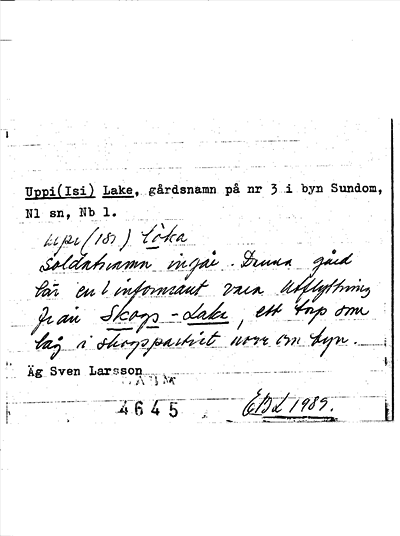 Uppi(Isi) Lake, gårdsnamn på nr 3 i byn Sundom,
Nl sn, Nb l.
upi (isi) löka
Soldatnamn ingår. Denna gård
lär enl informant vara utflyttning
från Skogs-Lake, ett torp som
låg i skogspartiet norr om byn.
Äg Sven Larsson
4645
EBL 1989.